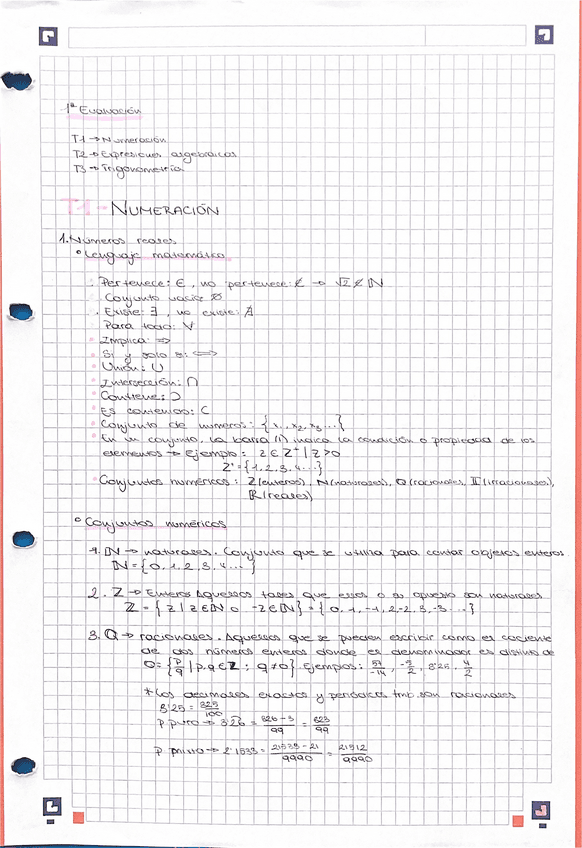 1ª Evaluación
T1 → Numeración
T2 → Expresiones algebraicas
T3 → Trigonometría
T1 - NUMERACIÓN
1. Números reales
° Lenguaje matemático
· Pertenece: ∈, no pertenece: ∉ → √2 ∉ ℕ
· Conjunto vacío: ∅
· Existe: ∃, no existe: ∄
· Para todo: ∀
· Implica: ⇒
· Si y solo si: ⟺
· Unión: ∪
· Intersección: ∩
· Contiene: ⊃
· Es contenido: ⊂
· Conjunto de números: {x₁, x₂, x₃ ...}
· En un conjunto, la barra (/) indica la condición o propiedad de los
elementos → Ejemplo: z ∈ Z⁺ | z > 0
Z⁺ = {1, 2, 3, 4...}
· Conjuntos numéricos: ℤ (enteros), ℕ (naturales), ℚ (racionales), 𝕀 (irracionales),
ℝ (reales)
° Conjuntos numéricos
1. ℕ → naturales. Conjunto que se utiliza para contar objetos enteros
ℕ = {0, 1, 2, 3, 4...}
2. ℤ → Enteros Aquellos tales que ellos o su opuesto son naturales
ℤ = {z / z ∈ ℕ o -z ∈ ℕ} = {0, 1, -1, 2, -2, 3, -3 ...}
3. ℚ → racionales. Aquellos que se pueden escribir como el cociente
de dos números enteros donde el denominador es distino de
ℚ = {p/q | p, q ∈ ℤ ; q ≠ 0}. Ejemplos: 57/-14, -5/2, 8'25, 4/2
* Los decimales exactos y periódicos tmb son racionales
8'25 = 825/100
P puro → 3'26 = 326 - 3/99 = 323/99
P mixto → 2'1533 = 21533 - 21/9990 = 21512/9990